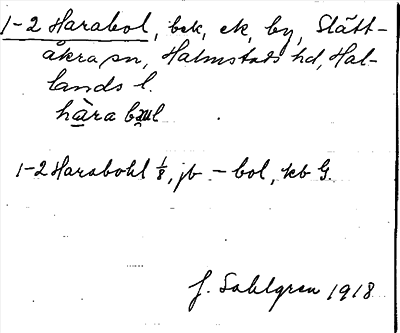 1-2 Harabol, bek, ek, by, Slätt-
åkra sn, Halmstads hd, Hal-
lands l.
hàra bωl
1-2 Harabohl 1/8, jb -bol, kb G.
J. Sahlgren 1918